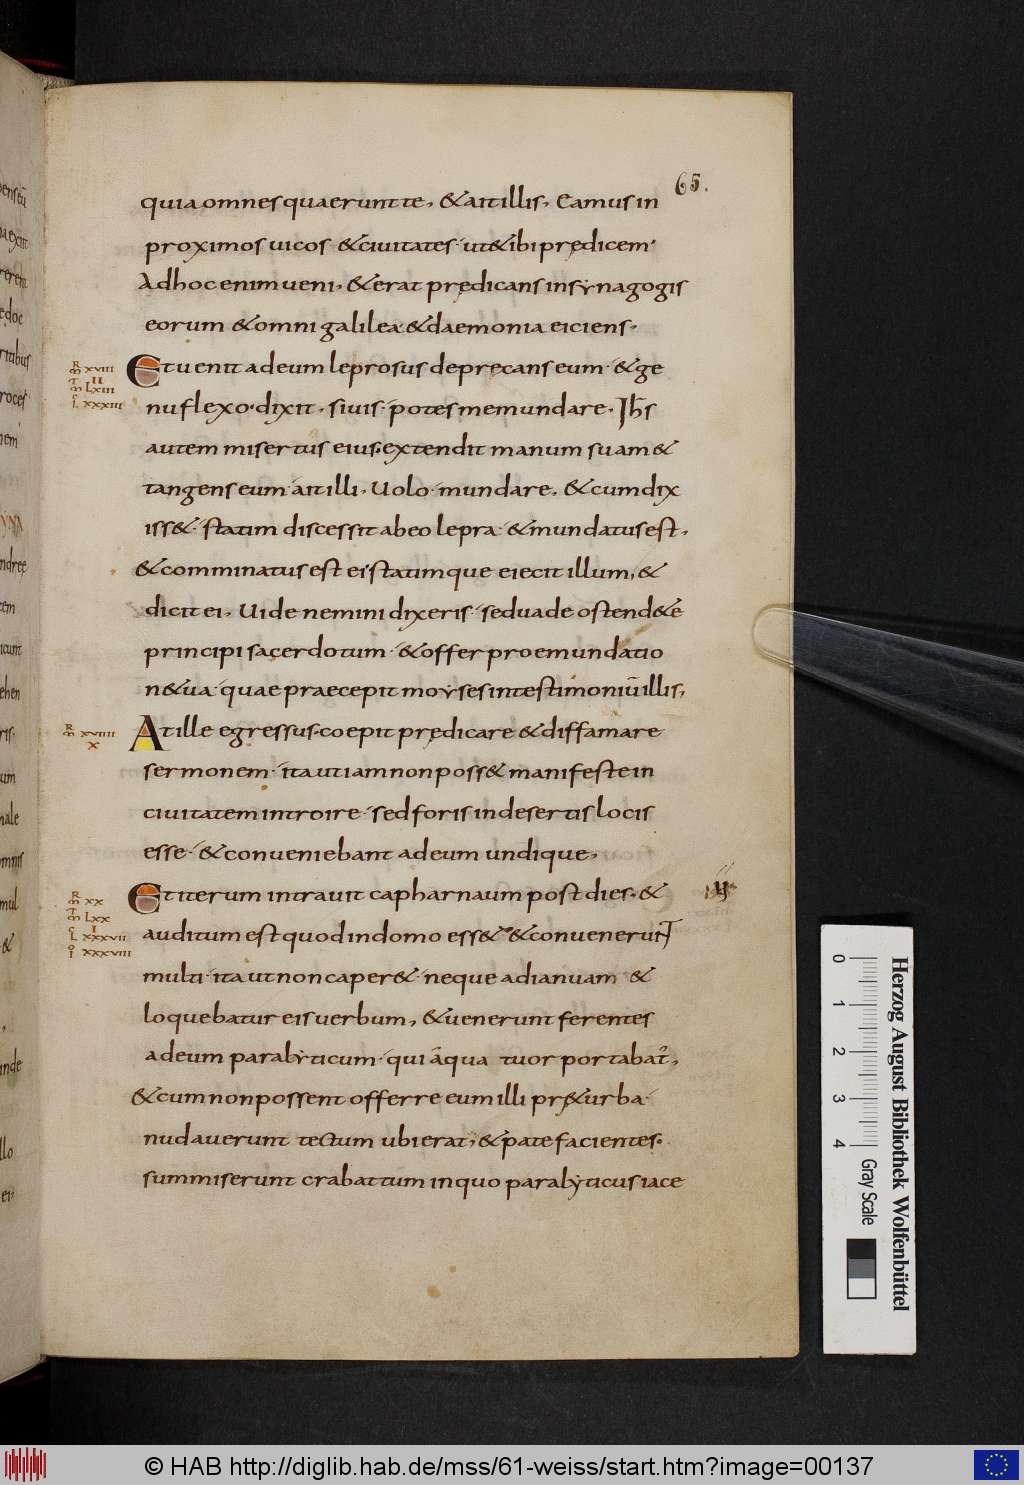 65.
quia omnes quaerunt te, & ait illis, Eamus in
proximos uicos & ciuitates ut & ibi prędicem
Ad hoc enim ueni, & erat prędicans in synagogis
eorum & omni galilea & daemonia eiciens.
Et uenit ad eum leprosus deprecans eum & ge
nu flexo dixit, si uis potes me mundare. Ih̅s
autem misertus eius extendit manum suam &
tangens eum ait illi, Uolo mundare, & cum dix
iss& statim discessit ab eo lepra & mundatus est,
& comminatus est ei statimque eiecit illum, &
dicit ei, Uide nemini dixeris sed uade ostend& e
principi sacerdotum & offer pro emundatio
n& ua quae praecepit moyses in testimoniū illis,
At ille egressus coepit prędicare & diffamare
sermonem ita ut iam non poss& manifeste in
ciuitatem introire sed foris in desertis locis
esse & conueniebant ad eum undique,
Et iterum intrauit capharnaum post dies. &
auditum est quod in domo ess& & conuenerunt
multi ita ut non caper& neque ad ianuam &
loquebatur eis uerbum, & uenerunt ferentes
ad eum paralyticum qui a quatuor portabat̄,
& cum non possent offerre eum illi prę turba
nudauerunt tectum ubi erat, & patefacientes
summiserunt crabattum in quo paralyticus iace
XVIII
II
LXIII
XXXIII
XVIIII
X
XX
LXX
I
XXXVII
XXXVIII
0 1 2 3 4
Gray Scale
Herzog August Bibliothek Wolfenbüttel
© HAB http://diglib.hab.de/mss/61-weiss/start.htm?image=00137